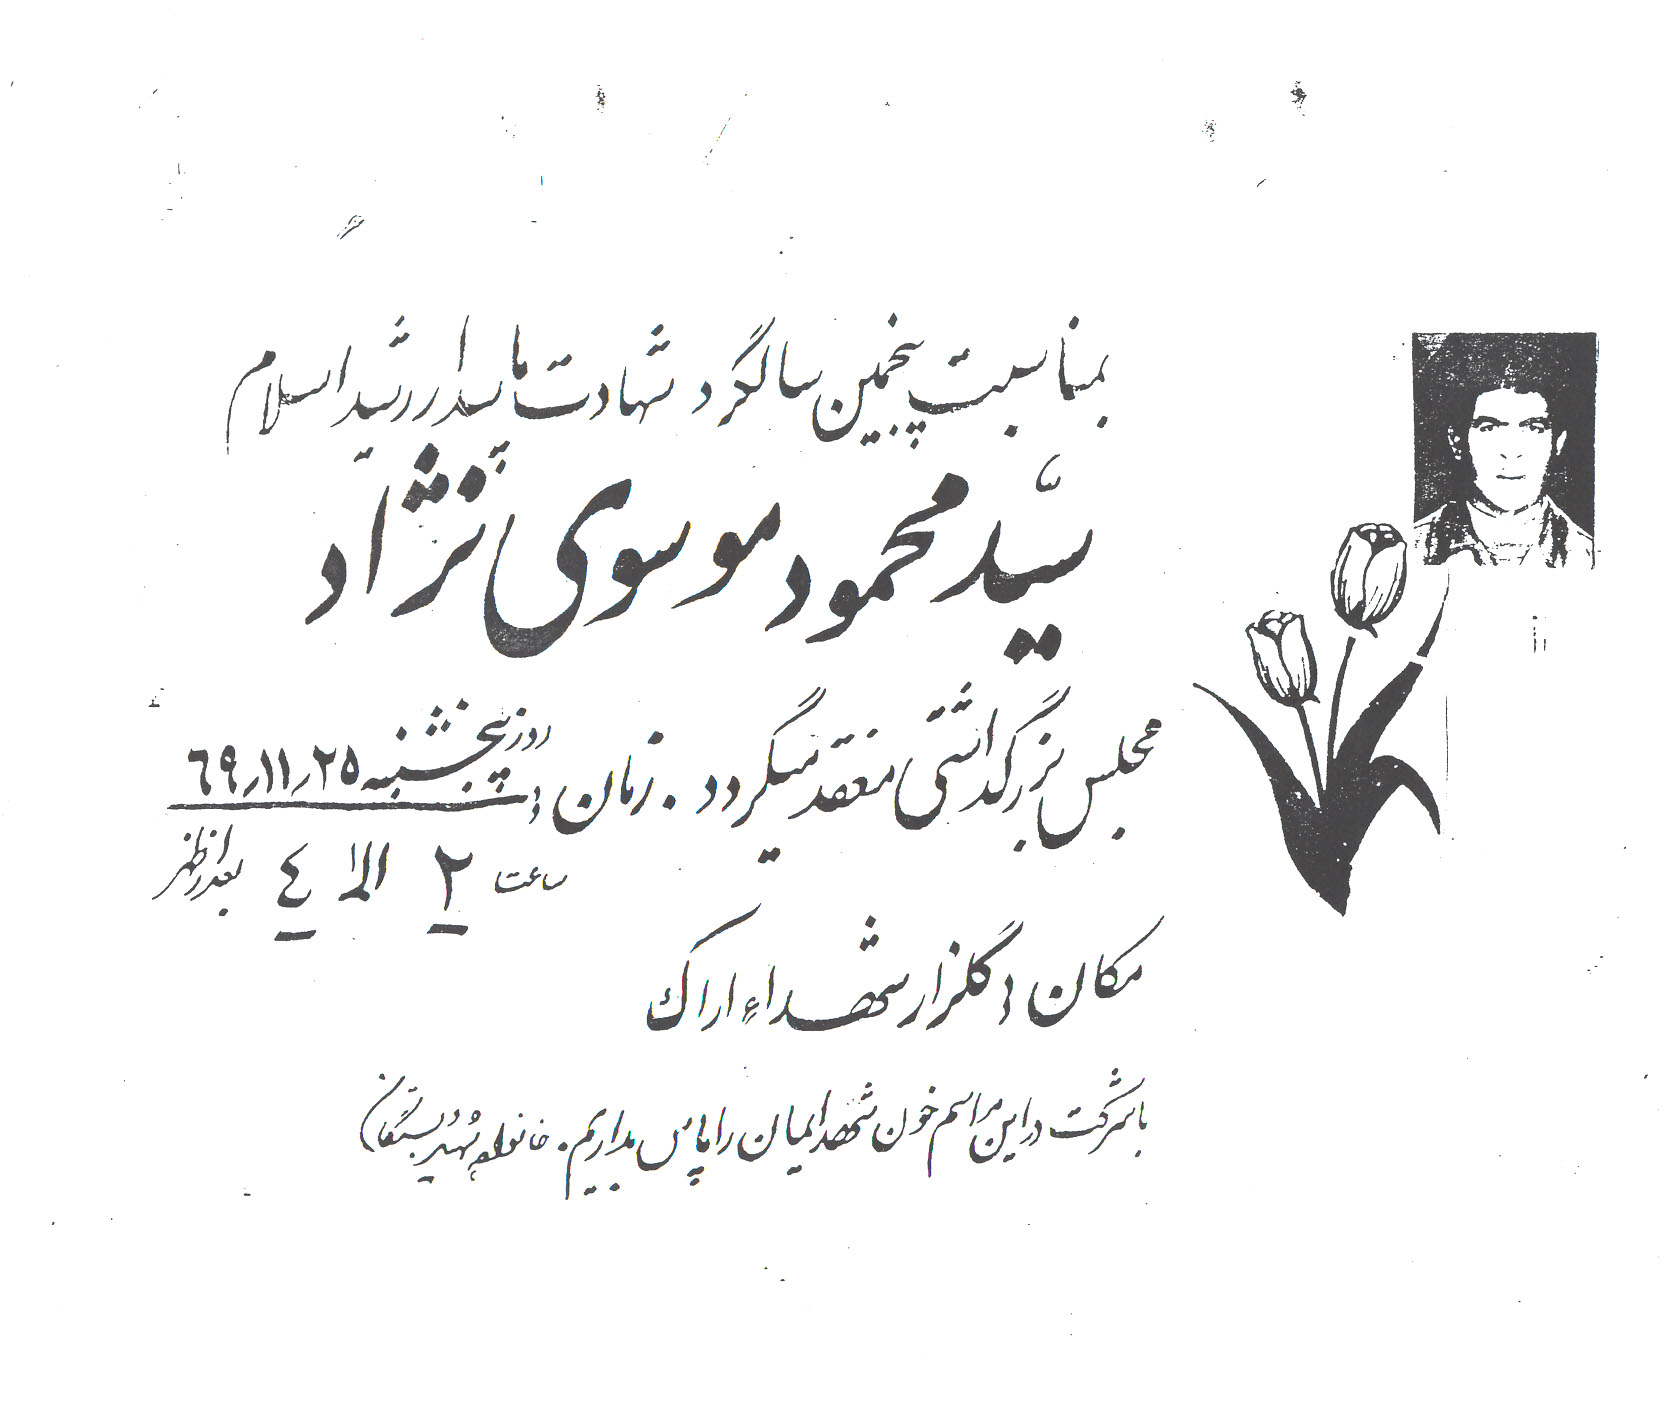 بمناسبت پنجمین سالگرد شهادت پاسدار رشید اسلام
سیّد محمود موسوی نژاد
مجلس بزرگداشتی منعقد میگردد. زمان: روز پنجشنبه ٦٩/١١/٢٥
ساعت ٢ الی ٤ بعد از ظهر
مکان: گلزار شهداء اراک
با شرکت در این مراسم خون شهدایمان را پاس بداریم. خانواده شهید و بستگان